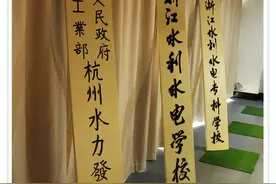 人民政府
工業部
杭州水力發
浙江水利水电学校
浙江水利水电专科学校